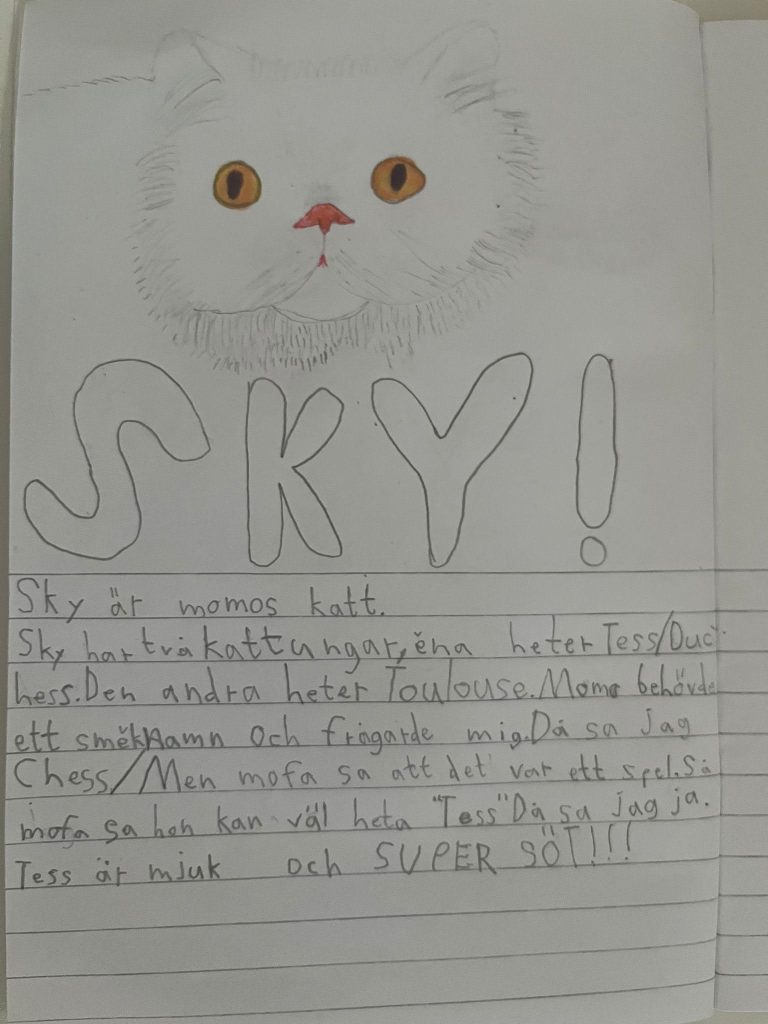 SKY!
Sky är momos katt.
Sky har två kattungar, ena heter Tess/Duc
hess. Den andra heter Toulouse. Momo behövde
ett smeknamn och frågarde mig. Då sa Jag
Chess/Men mofa sa att det var ett spel. Så
mofa sa hon kan väl heta "Tess" Då sa jag ja.
Tess är mjuk och SUPER SÖT!!!